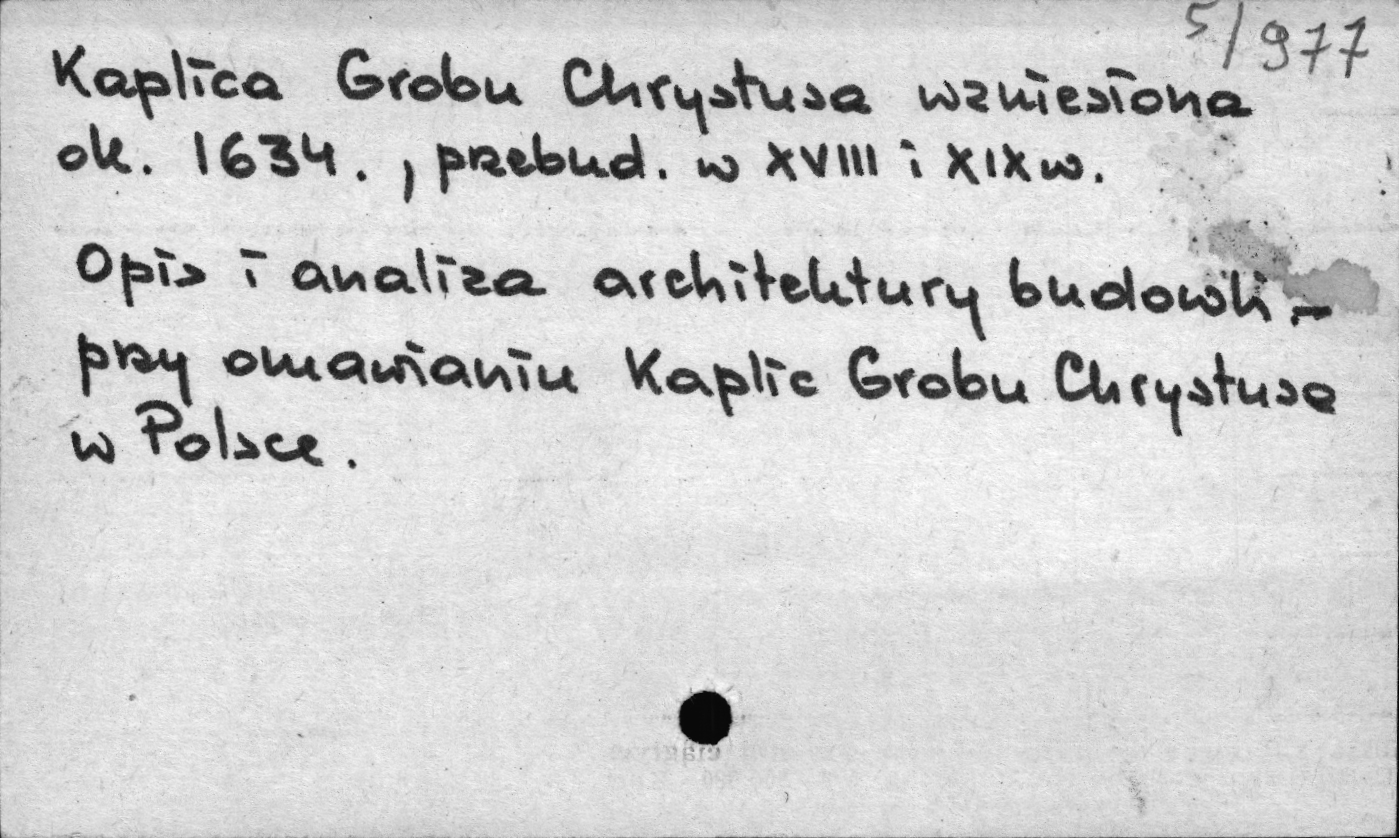 5/977
Kaplica Grobu Chrystusa wzniesiona
ok. 1634., przebud. w XVIII i XIX w.
Opis i analiza architektury budowli –
przy omawianiu Kaplic Grobu Chrystusa
w Polsce.